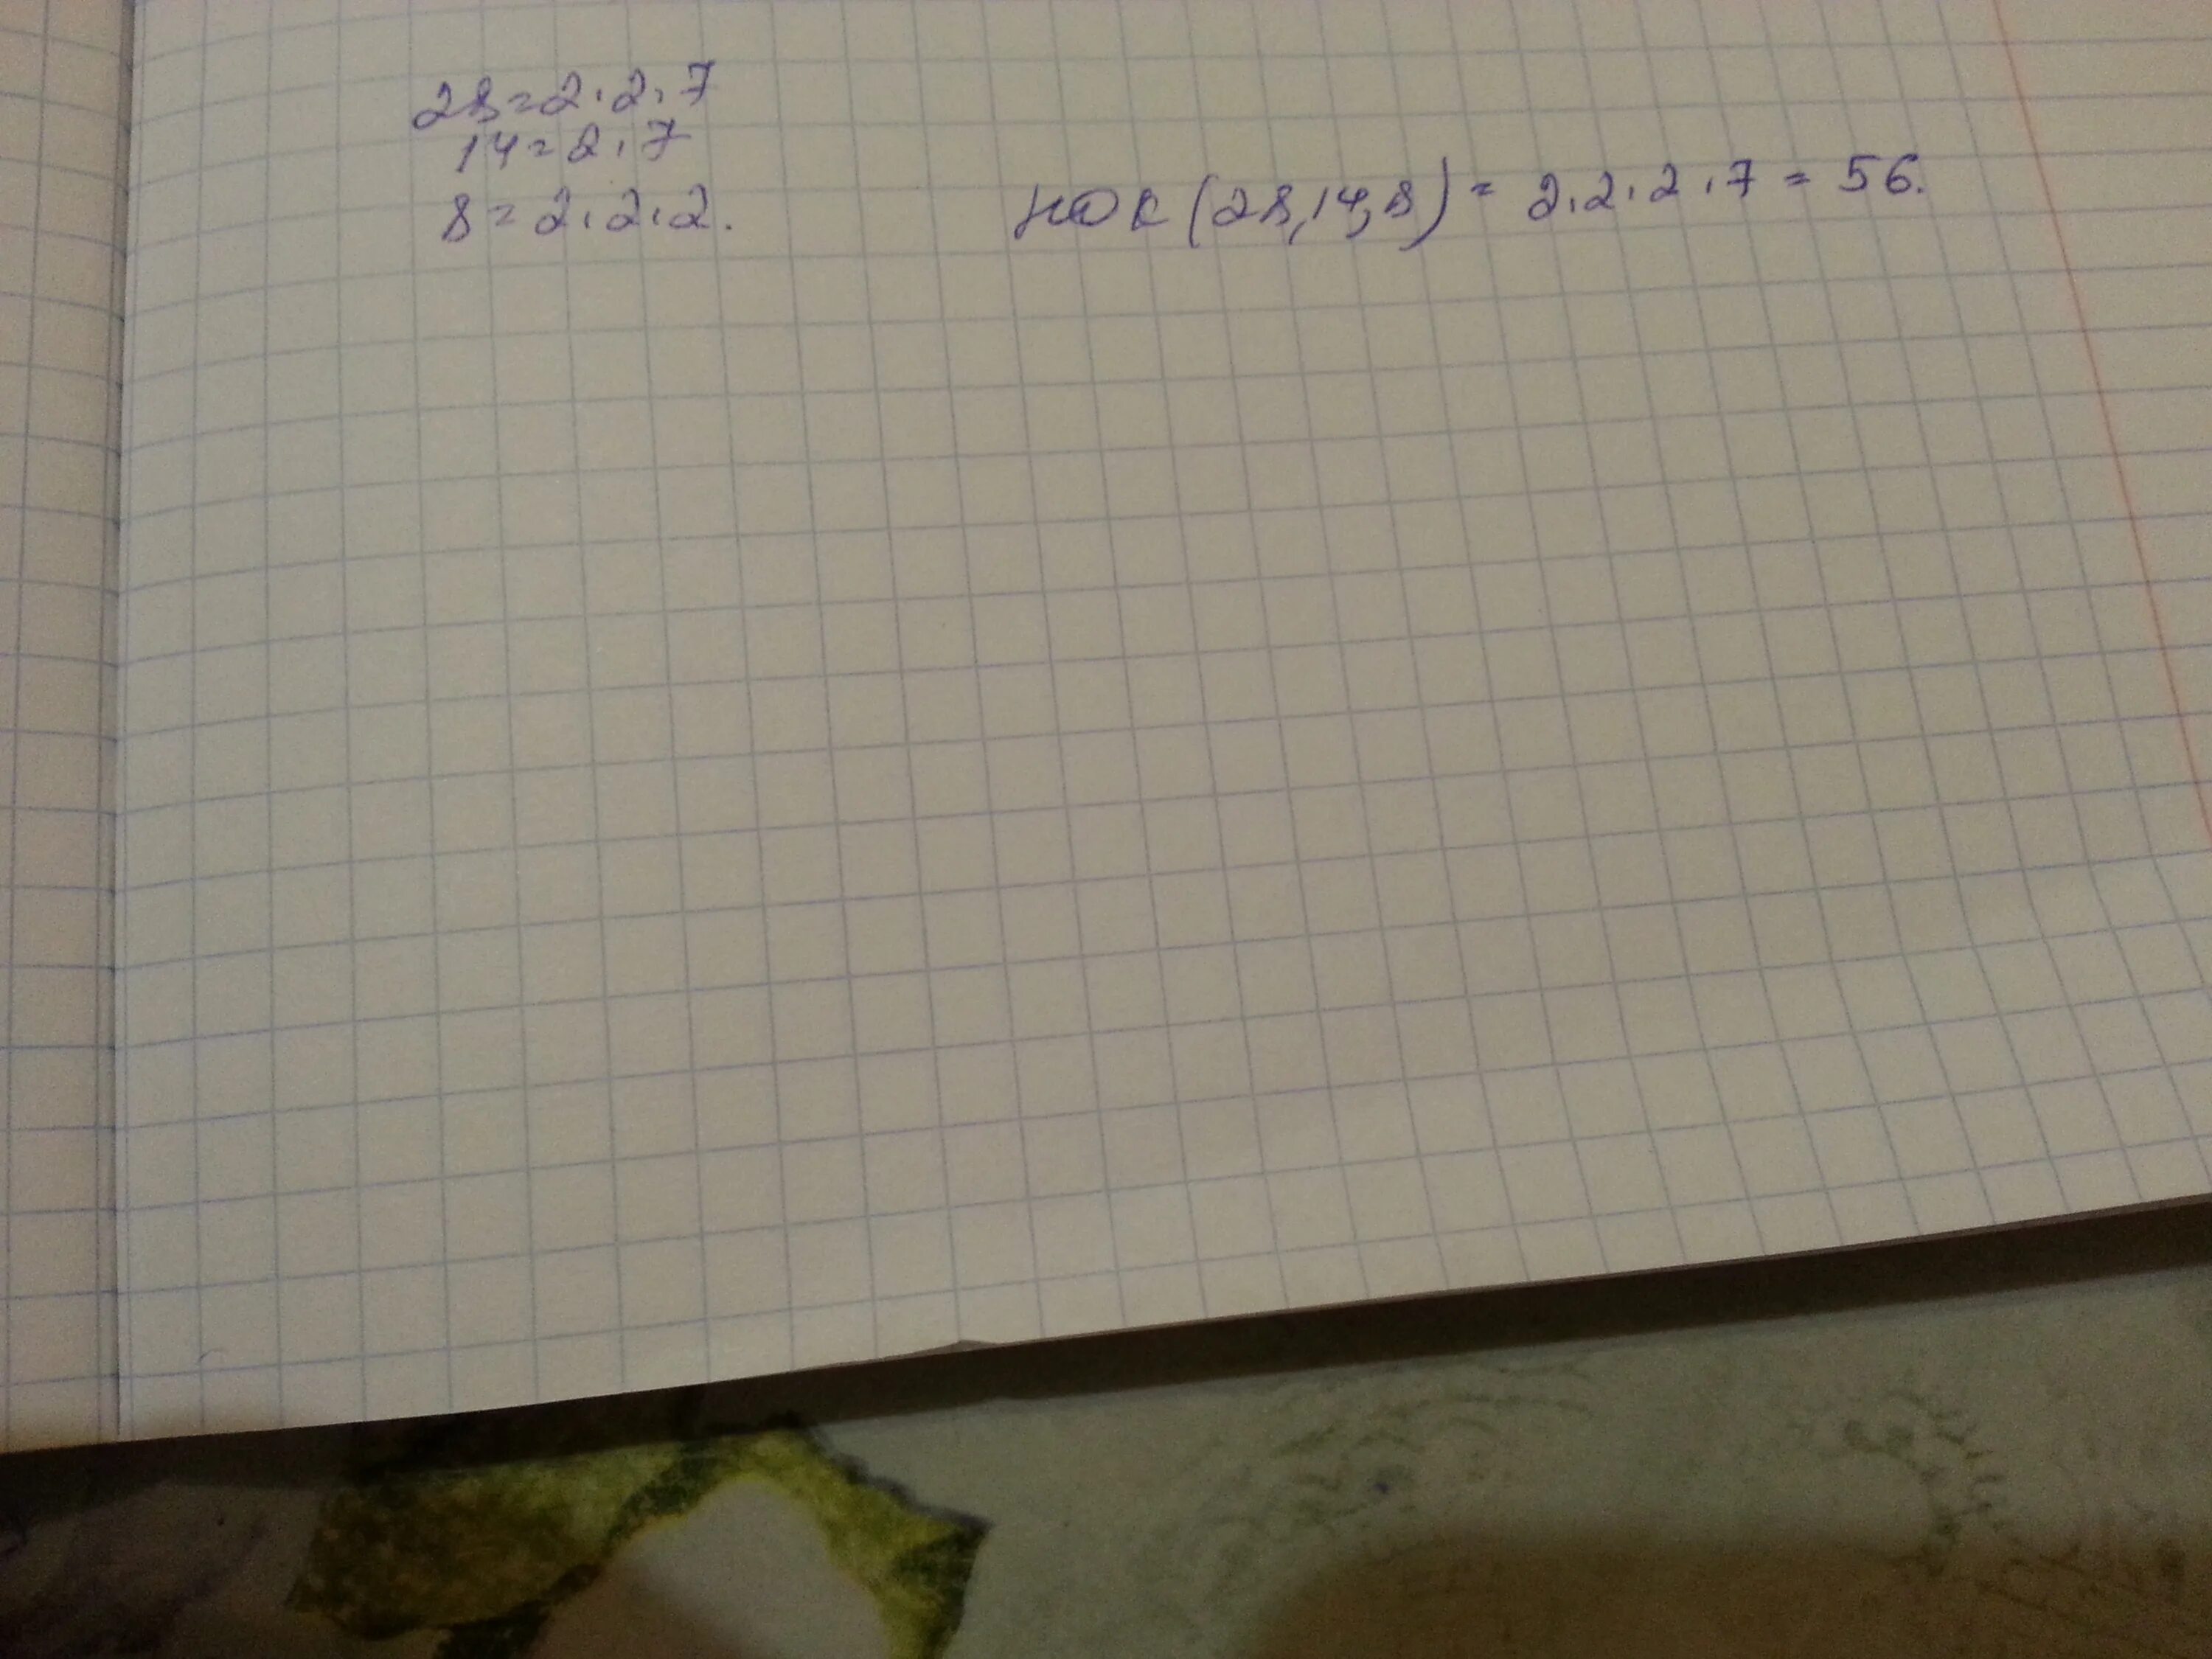 28=2.2.7
14=2.7
8=2.2.2.
НОК (28,14,8) = 2.2.2.7 = 56.